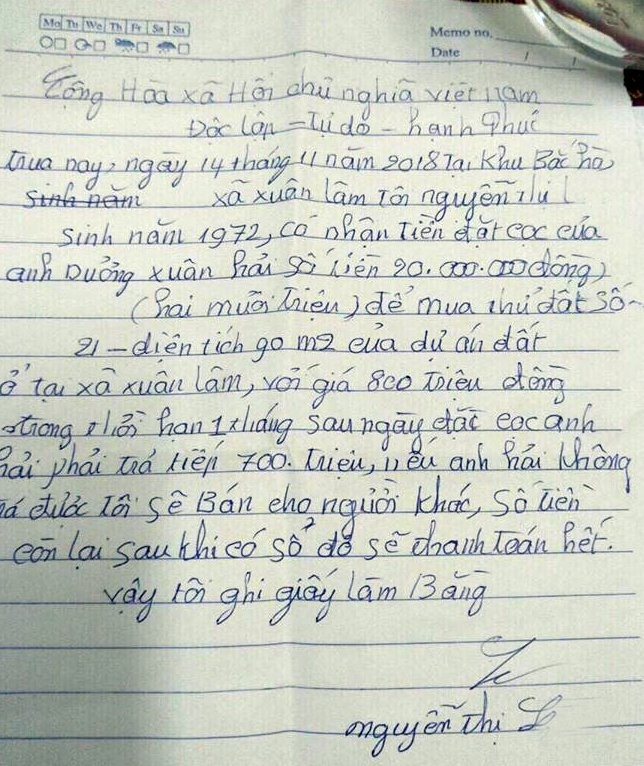 Mo Tu We Th Fr Sa Su
Memo no.
Date / /
Cộng Hòa xã Hội chủ nghĩa việt nam
Độc lập - Tự do - hạnh Phúc
Trưa nay, ngày 14 tháng 11 năm 2018 Tại Khu Bắc hà
sinh năm xã xuân lâm Tôi nguyễn thị L
sinh năm 1972, có nhận Tiền đặt cọc của
anh Dưỡng xuân hải số tiền 20.000.000 đồng)
(hai mươi triệu) để mua thử đất số
21 - diện tích 90 m2 của dự án đất
ở tại xã xuân lâm, với giá 800 triệu đồng
trong thời hạn 1 tháng sau ngày đặt cọc anh
hải phải trả tiếp 700. triệu, nếu anh hải không
trả được Tôi sẽ Bán cho người khác, số tiền
còn lại sau khi có sổ đỏ sẽ thanh toán hết.
vậy tôi ghi giấy làm Bằng
nguyễn thị L